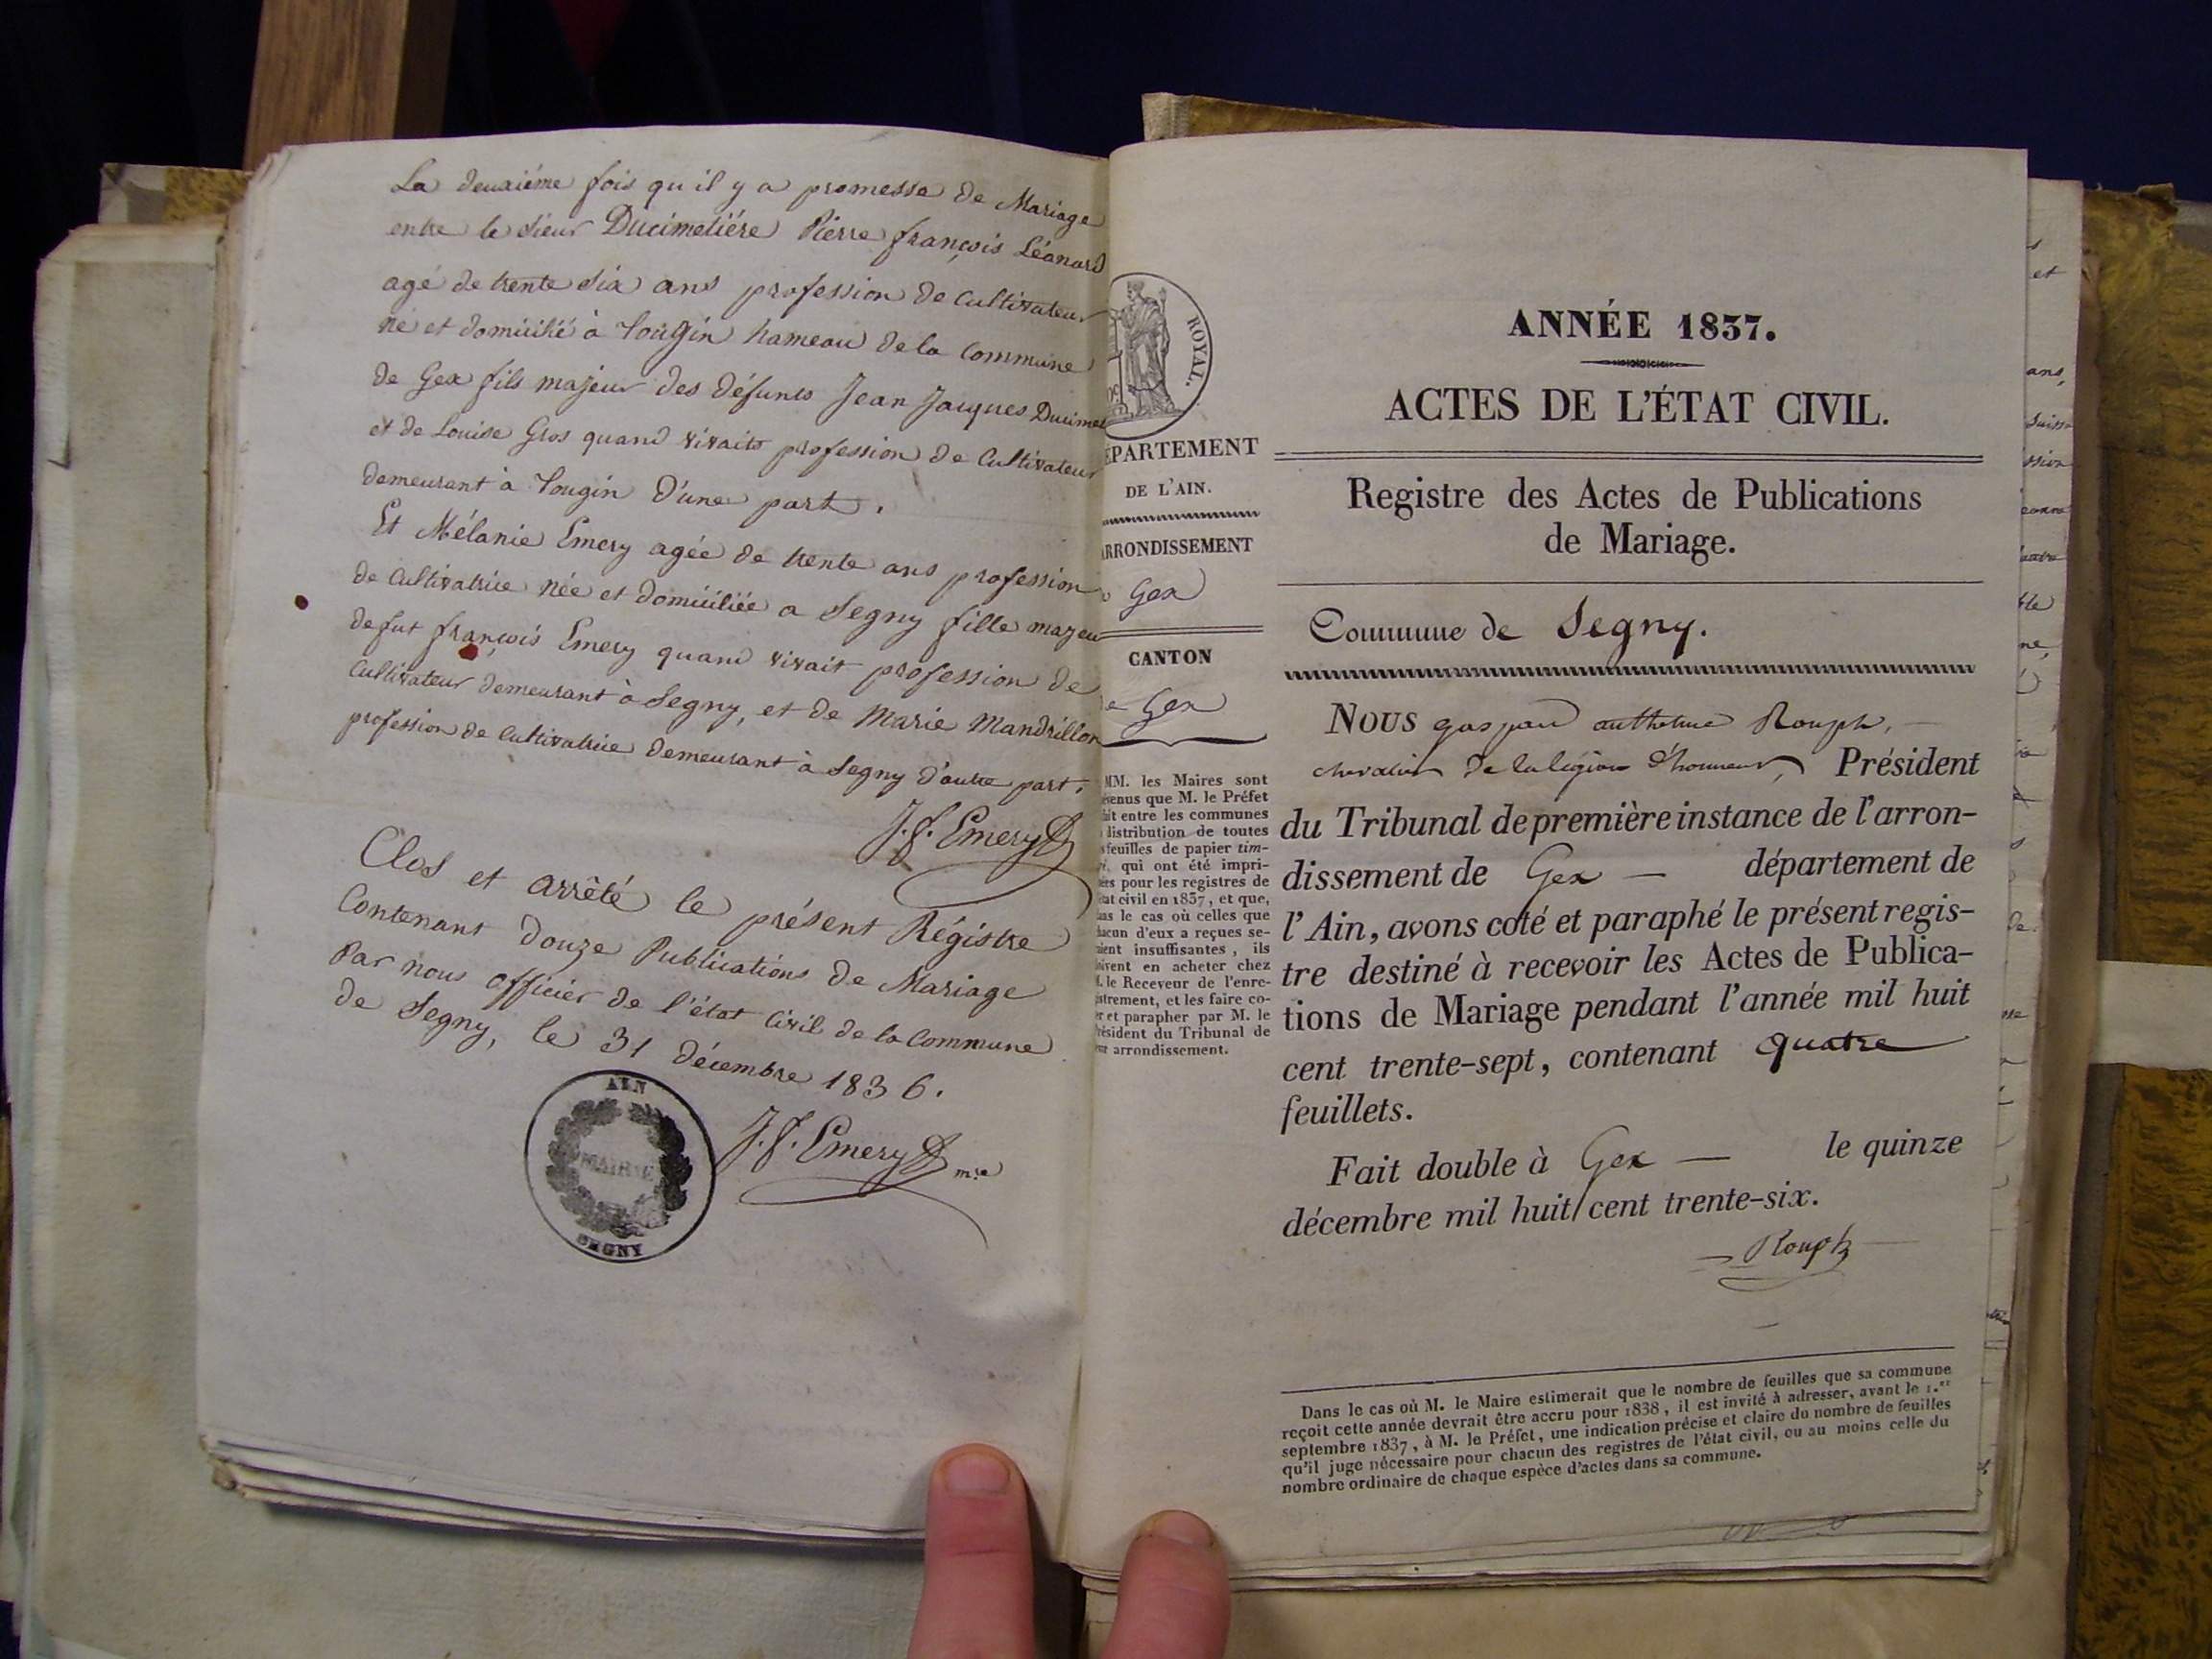 La deuxiéme fois qu'il y a promesse de Mariage
entre le sieur Ducimetiére Pierre françois Léonard
agé de trente six ans profession de Cultivateur
né et domicilié à Tougin hameau de la Commune
de Gex fils majeur des défunts Jean Jacques Ducimet
et de Louise Gros quand vivaits profession de Cultivateur
demeurant à Tougin d'une part.
Et Mélanie Emery agée de trente ans profession
de Cultivatrice née et domiciliée a Segny fille majeu
de fut françois Emery quand vivait profession de
Cultivateur demeurant à Segny, et de Marie Mandrillon
profession de Cultivatrice demeurant à Segny d'autre part.
J. f. Emery
Clos et arrêté le présent Régistre
Contenant douze Publications de Mariage
Par nous officier de l'état Civil de la Commune
de Segny, le 31 décembre 1836.
AIN
MAIRIE
SEGNY
J. f. Emery m.re
ROYAL.
ÉPARTEMENT
DE L'AIN.
ARRONDISSEMENT
Gex
CANTON
de Gex
MM. les Maires sont
évenus que M. le Préfet
ait entre les communes
distribution de toutes
feuilles de papier tim-
ré, qui ont été impri-
ées pour les registres de
état civil en 1837, et que,
ans le cas où celles que
hacun d'eux a reçues se-
aient insuffisantes, ils
oivent en acheter chez
M. le Receveur de l'enre-
istrement, et les faire co-
er et parapher par M. le
résident du Tribunal de
eur arrondissement.
ANNÉE 1837.
ACTES DE L'ÉTAT CIVIL.
Registre des Actes de Publications
de Mariage.
Commune de Segny.
NOUS gaspard anthelme Rouph,
chevalier de la légion d'honneur, Président
du Tribunal de première instance de l'arron-
dissement de Gex — département de
l'Ain, avons coté et paraphé le présent regis-
tre destiné à recevoir les Actes de Publica-
tions de Mariage pendant l'année mil huit
cent trente-sept, contenant quatre
feuillets.
Fait double à Gex — le quinze
décembre mil huit cent trente-six.
Rouph
Dans le cas où M. le Maire estimerait que le nombre de feuilles que sa commune
reçoit cette année devrait être accru pour 1838, il est invité à adresser, avant le 1.er
septembre 1837, à M. le Préfet, une indication précise et claire du nombre de feuilles
qu'il juge nécessaire pour chacun des registres de l'état civil, ou au moins celle du
nombre ordinaire de chaque espèce d'actes dans sa commune.